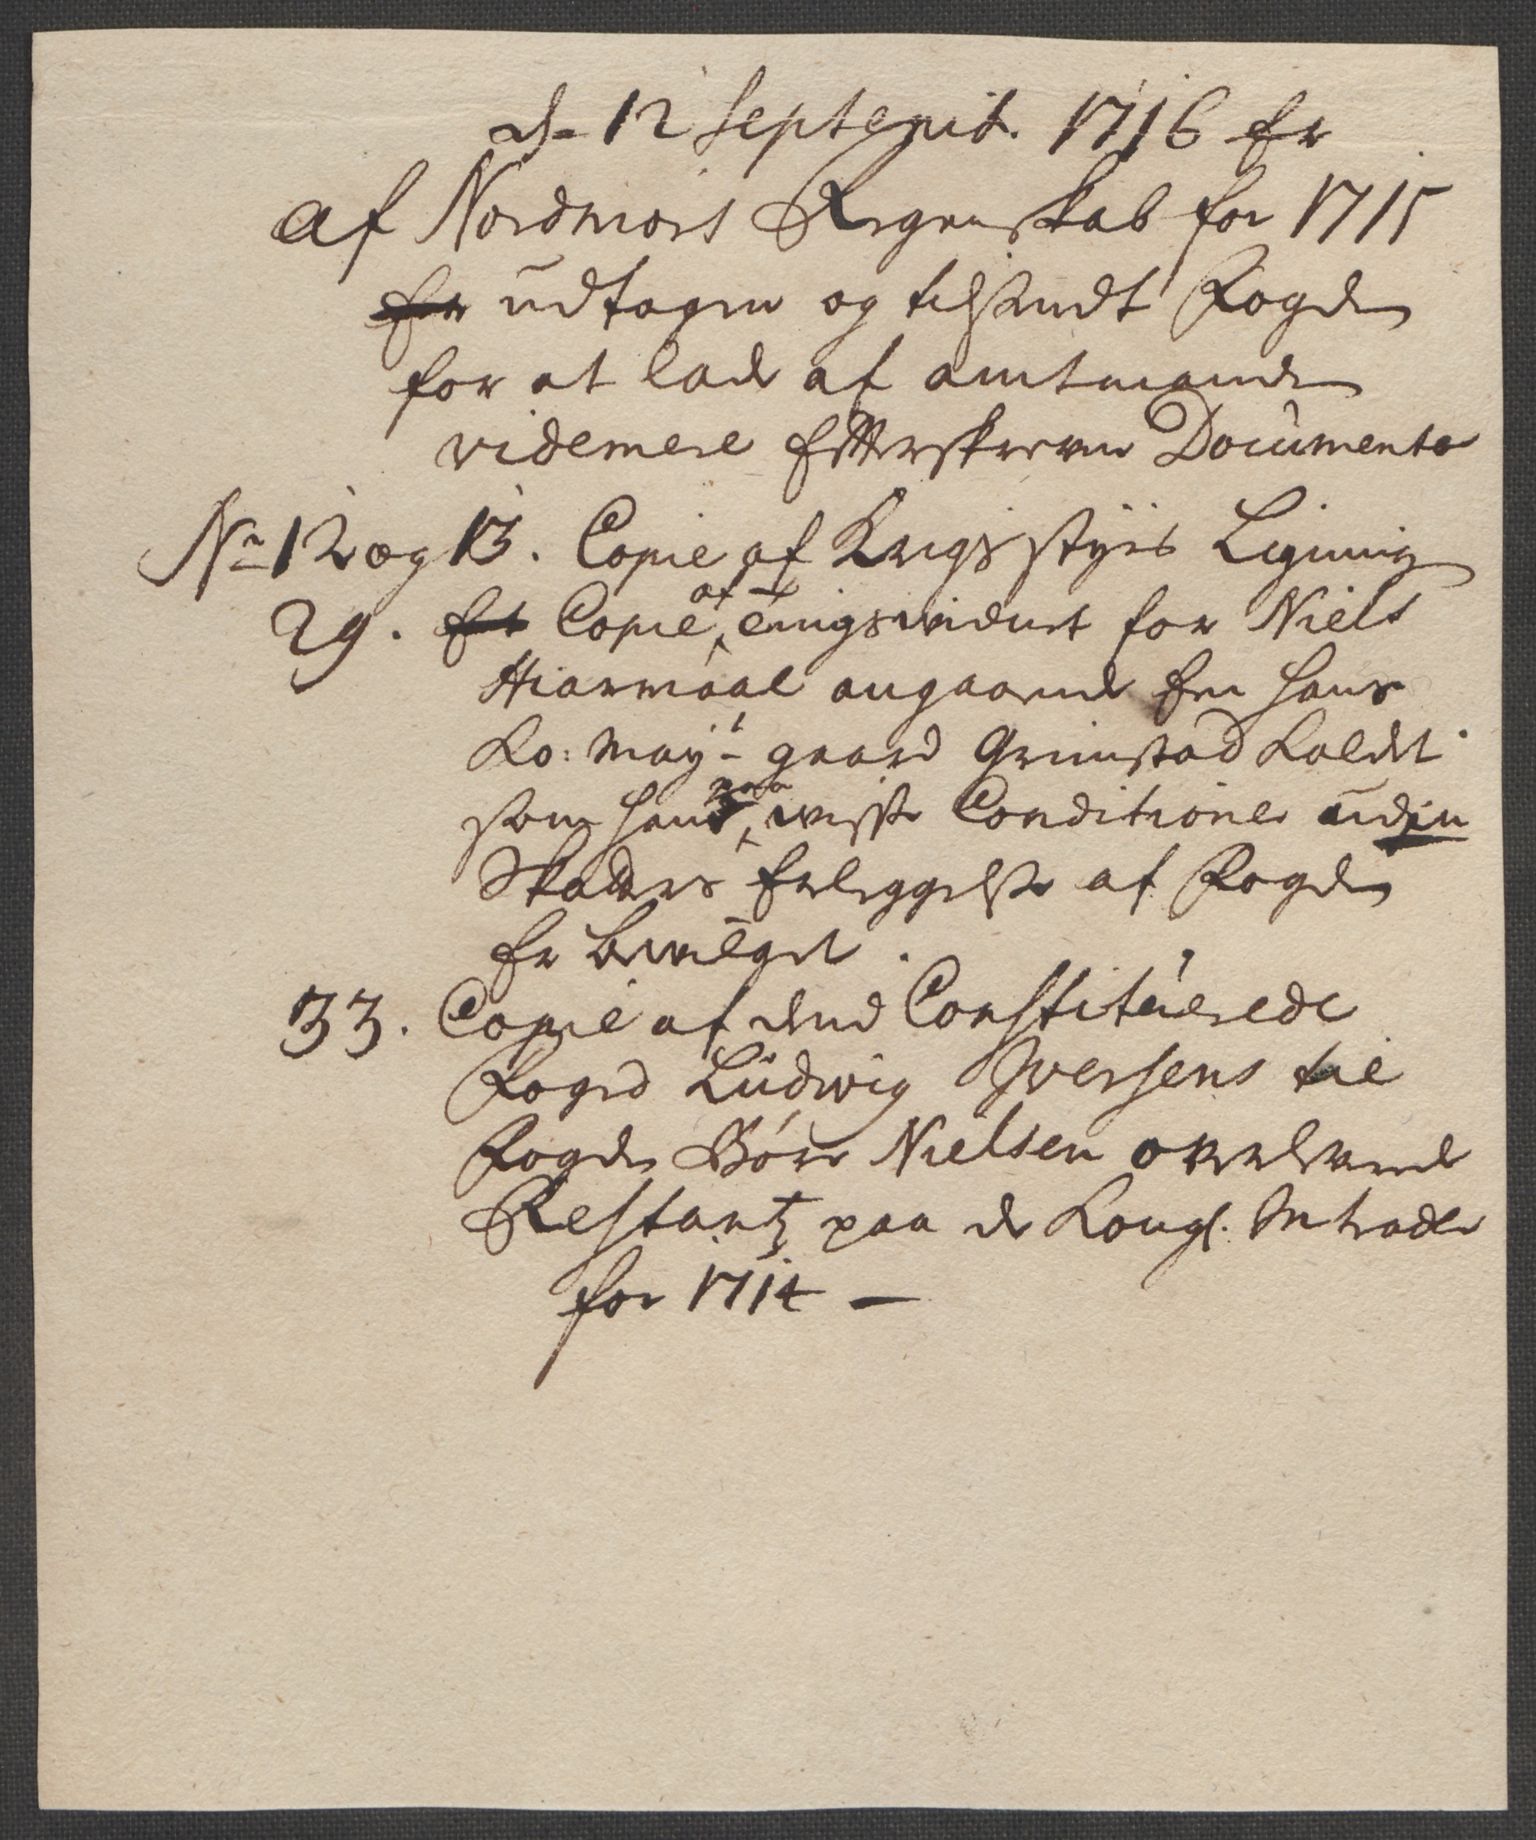 d. 12 Septemb. 1716 Er
af Nordmörs Regenskab for 1715
er udtagen og tilsendt Fogden
for at lade af amtmanden
videmere Efterskrevne Documenter
No 12 og 13. Copie af Krigsstyrs Ligning
29. Et Copie af et tingsvidne for Niels
Hiarmaal angaaende En Hans
Ko: Mayts gaard Grimstad kaldet
som Hans paa visse Conditioner uden
Skatters Erleggelse af Fogden
Er bevilget.
33. Copie af dend Constituerede
Foged Ludwig Iversens til
Fogden Börre Nielsen overleverede
Restantz paa de Kongl. Intrader
for 1714 —